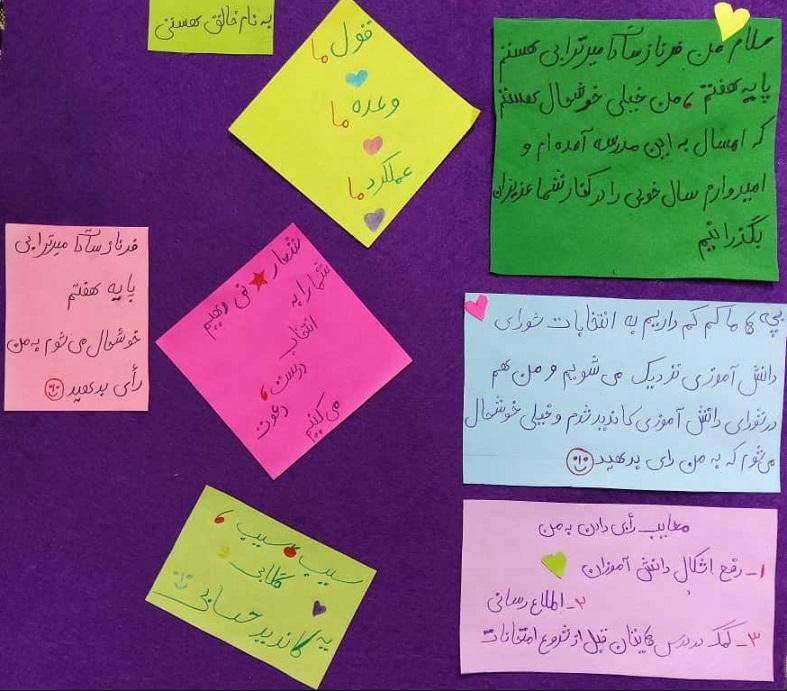 به نام خالق هستی
قول ما
وعده ما
عملکرد ما
سلام من فرناز سادات میرترابی هستم
پایه هفتم، من خیلی خوشحال هستم
که امسال به این مدرسه آمده ام و
امیدوارم سال خوبی را در کنار شما عزیزان
بگذرانیم
فرناز سادات میرترابی
پایه هفتم
خوشحال می شوم به من
رأی بدهید
شعار نمی دهیم
شما را به
انتخاب
درست،
دعوت
می کنیم
بچه ها ما کم کم داریم به انتخابات شورای
دانش آموزی نزدیک می شویم و من هم
در شورای دانش آموزی کاندید شدم و خیلی خوشحال
می شوم که به من رای بدهید
سیب سیب،
گلابی
یه کاندید حسابی
معایب رأی دادن به من
۱- رفع اشکال دانش آموزان
۲- اطلاع رسانی
۳- کمک در درس هایتان قبل از شروع امتحانات